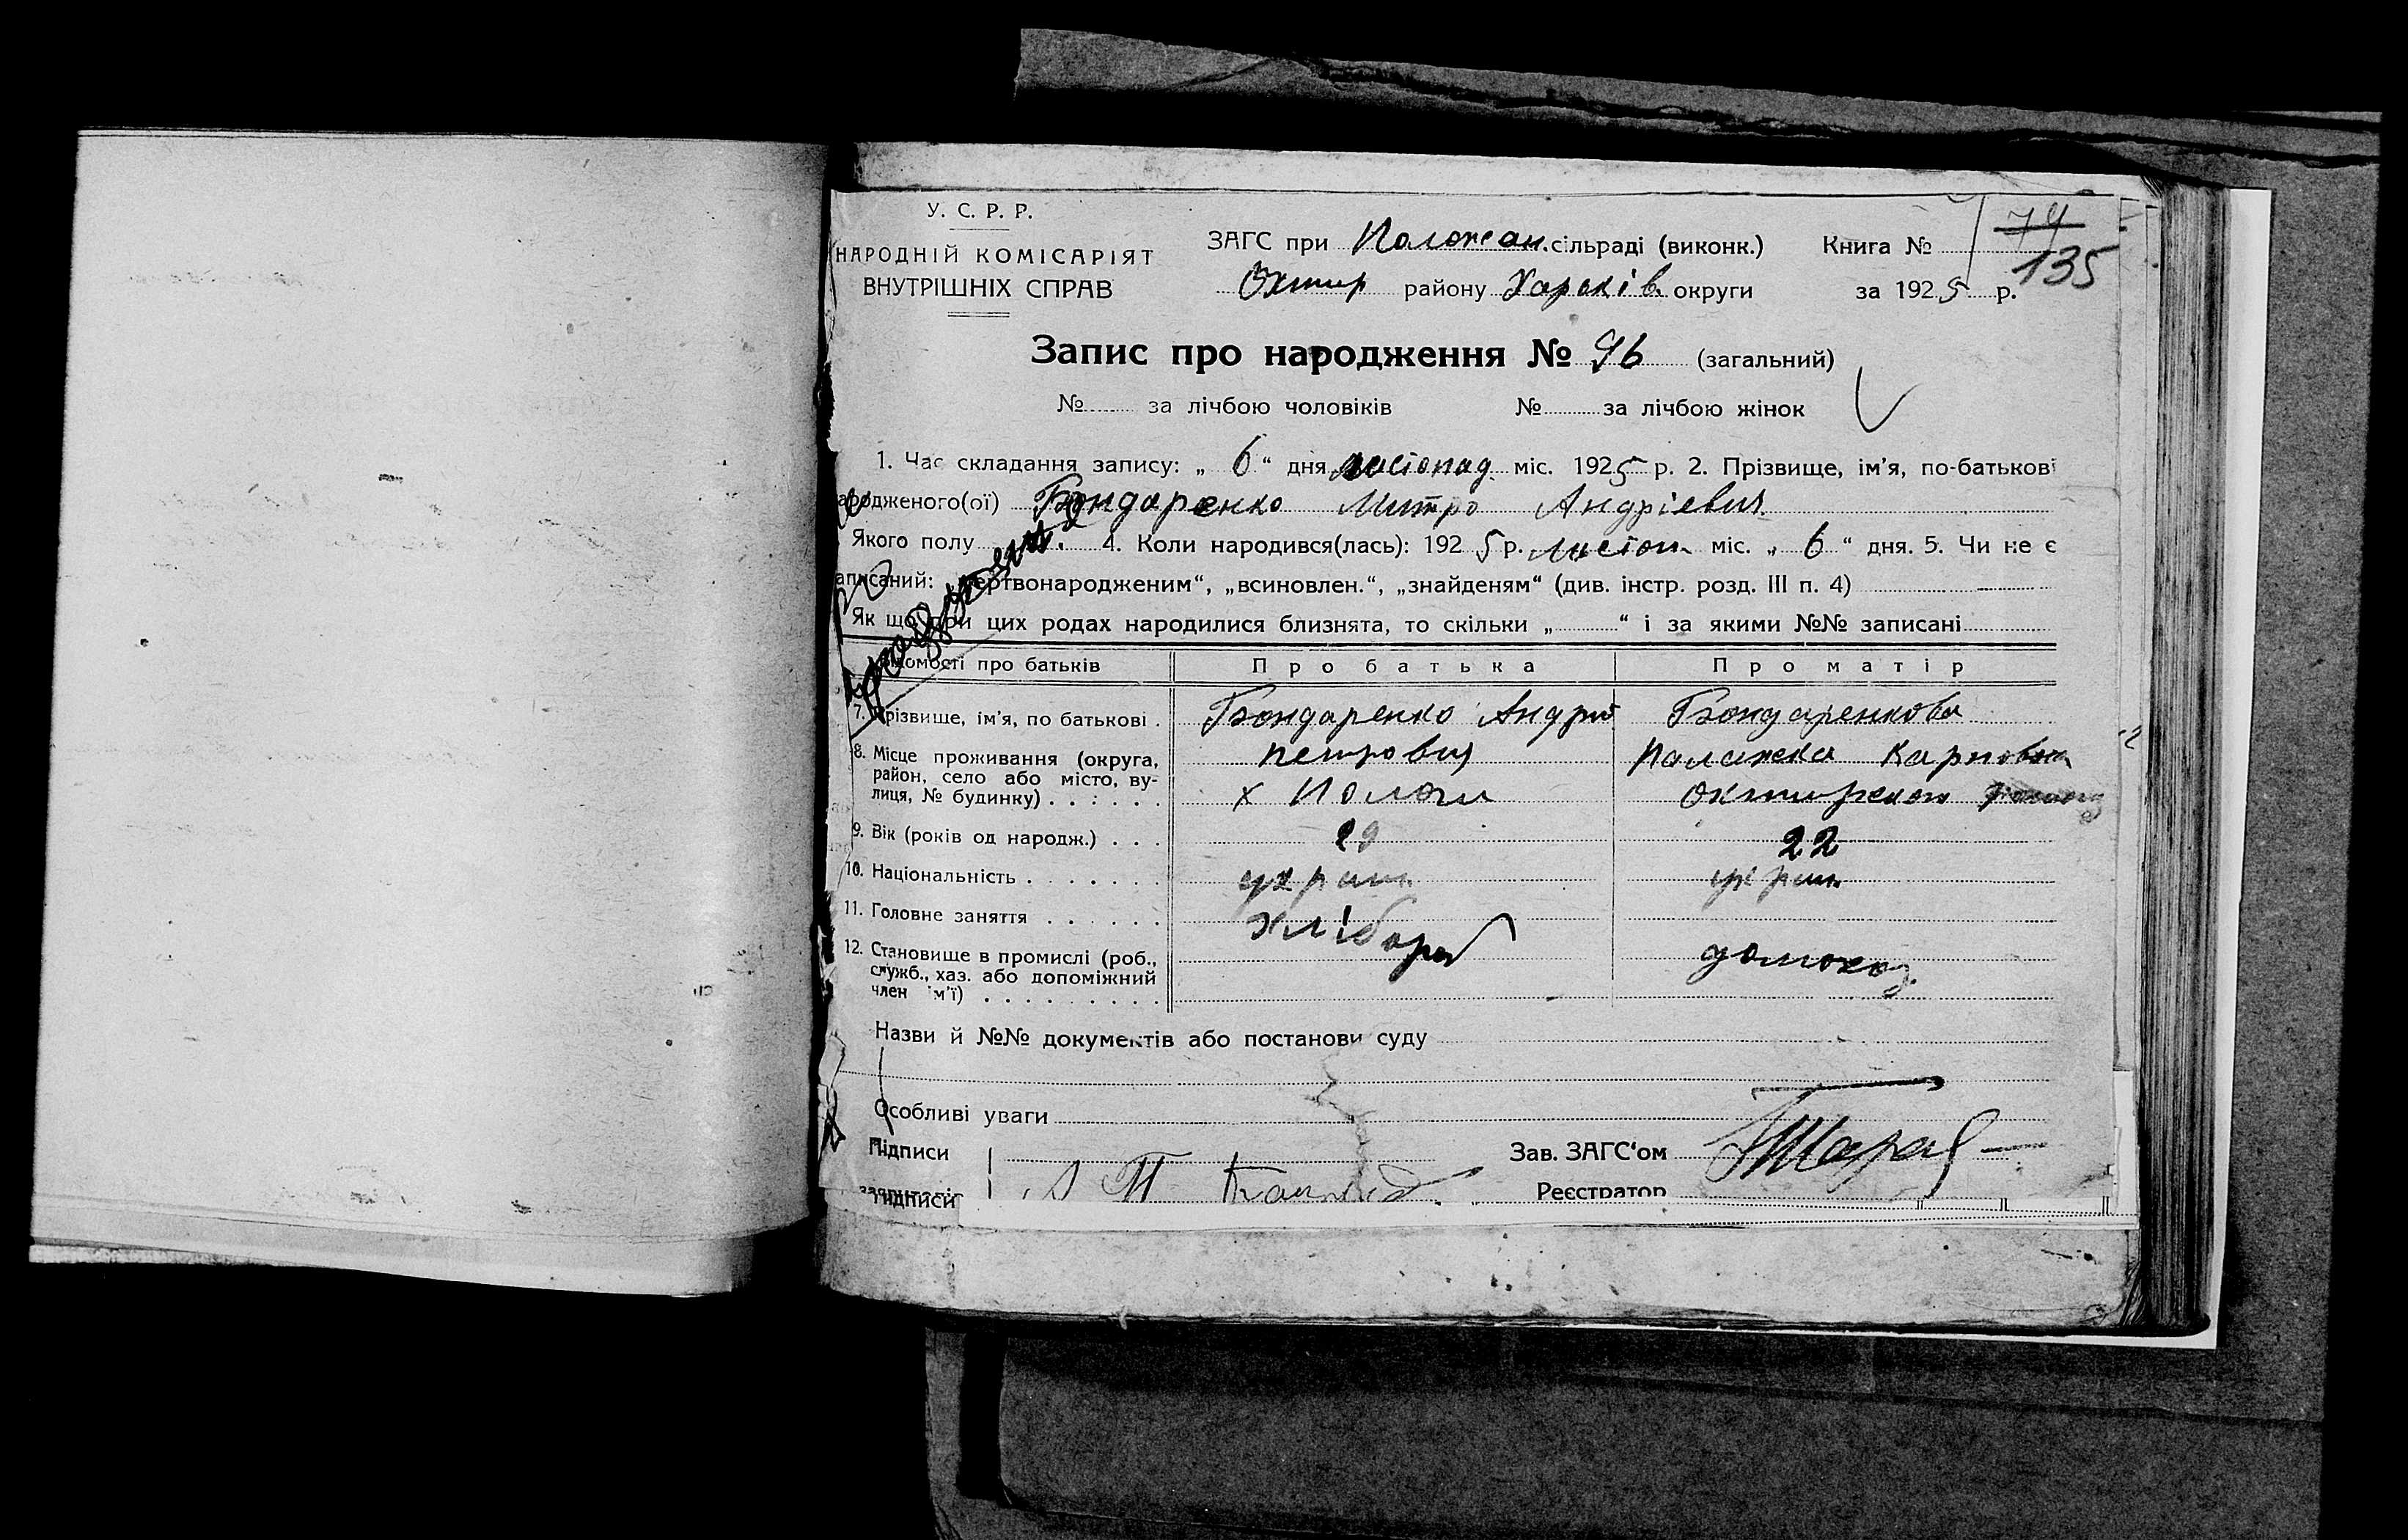 У. С. Р. Р.
НАРОДНІЙ КОМІСАРІЯТ
ВНУТРІШНІХ СПРАВ
ЗАГС при сільраді (виконк.)
Охтир району Харків. округи
Книга №
74
135
за 1925 р.
Запис про народження № 96 (загальний)
№ за лічбою чоловіків № за лічбою жінок
1. Час складання запису: „ 6 “ дня листопад. міс. 1925 р. 2. Прізвище, ім'я, по-батькові
народженого(ої) Бондаренко Митро Андрієвич
Якого полу 4. Коли народився(лась): 1925 р. листоп міс. „ 6 “ дня. 5. Чи не є
записаний: „мертвонародженим“, „всиновлен.“, „знайденям“ (див. інстр. розд. III п. 4)
Як що при цих родах народилися близнята, то скільки „ “ і за якими №№ записані
Відомості про батьків Про батька Про матір
7. Прізвище, ім'я, по батькові . Бондаренко Андрій Бондаренкова
Петрович Палажка Карповна
8. Місце проживання (округа,
район, село або місто, ву-
лиця, № будинку) . . . . . . х Пологи
9. Вік (років од народж.) . . . 29 22
10. Національність . . . . . . . україн. україн
11. Головне заняття . . . . . . хлібороб
12. Становище в промислі (роб.,
служб., хаз. або допоміжний
член сім'ї) . . . . . . . . . домохоз.
Назви й №№ документів або постанови суду
Особливі уваги
Підписи
Зав. ЗАГС‘ом
Реєстратор
підписи